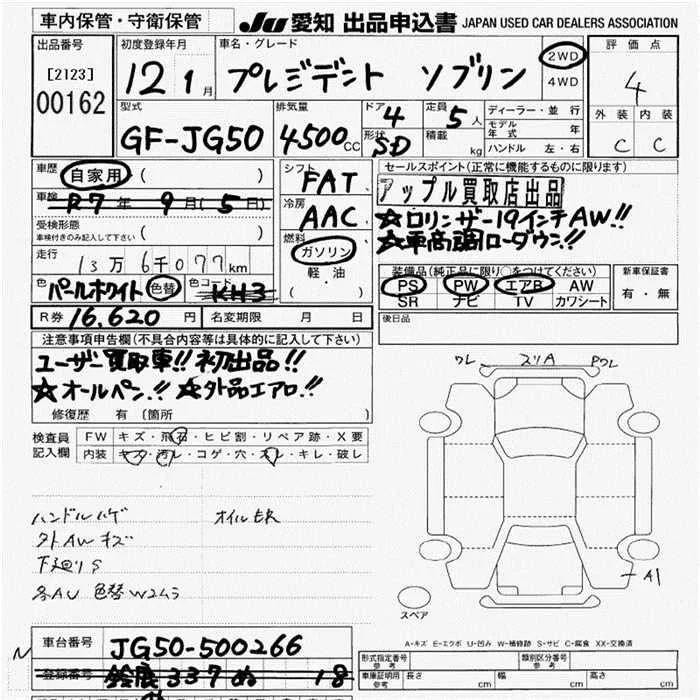 車内保管・守衛保管
JU 愛知 出品申込書 JAPAN USED CAR DEALERS ASSOCIATION
出品番号
[2123]
00162
初度登録年月
12 1 月
車名・グレード
プレジデント ソブリン
2WD
4WD
評価点
4
外装 内装
C C
型式
GF-JG50
排気量
4500 CC
ドア 4
形状 SD
定員 5 人
積載 kg
ディーラー・並行
モデル年式 年
ハンドル 左・右
車歴 自家用 ( )
車検 R7 年 9 月 ( 5 日)
受検形態
車検付きのみ記入して下さい ( )
走行
13万6千077km
色 パールホワイト 色替 色コード KH3
R券 16,620 円 名変期限 月 日
シフト
FAT
冷房
AAC
燃料
ガソリン
軽・油
( )
セールスポイント(正常に機能するものに限ります)
アップル買取店出品
☆ロリンザー19インチAW!!
☆車高調ローダウン!!
装備品(純正品に限り○をつけてください)
PS PW エアB AW
SR ナビ TV カワシート
新車保証書
有・無
後日品
注意事項申告欄(不具合内容等は具体的に記入して下さい)
ユーザー買取車!! 初出品!!
☆オールペン!! ☆外品エアロ!!
修復歴 有(箇所 )
検査員記入欄
FW キズ・飛石・ヒビ割・リペア跡・X要
内装 キズ・汚レ・コゲ・穴・スレ・キレ・破し
ハンドルハゲ オイルモレ
外AWキズ
下廻りS
各AU 色替W2ムラ
ワレ スリA Pワレ
A1
スペア
A-キズ E-エクボ U-凹み W-補修跡 S-サビ C-腐食 XX-交換済
車台番号 JG50-500266
登録番号 鈴鹿 337 ぬ 18
形式指定番号 参考
類別区分番号 参考
車庫証明用 参考 長さ cm 幅 cm 高さ cm